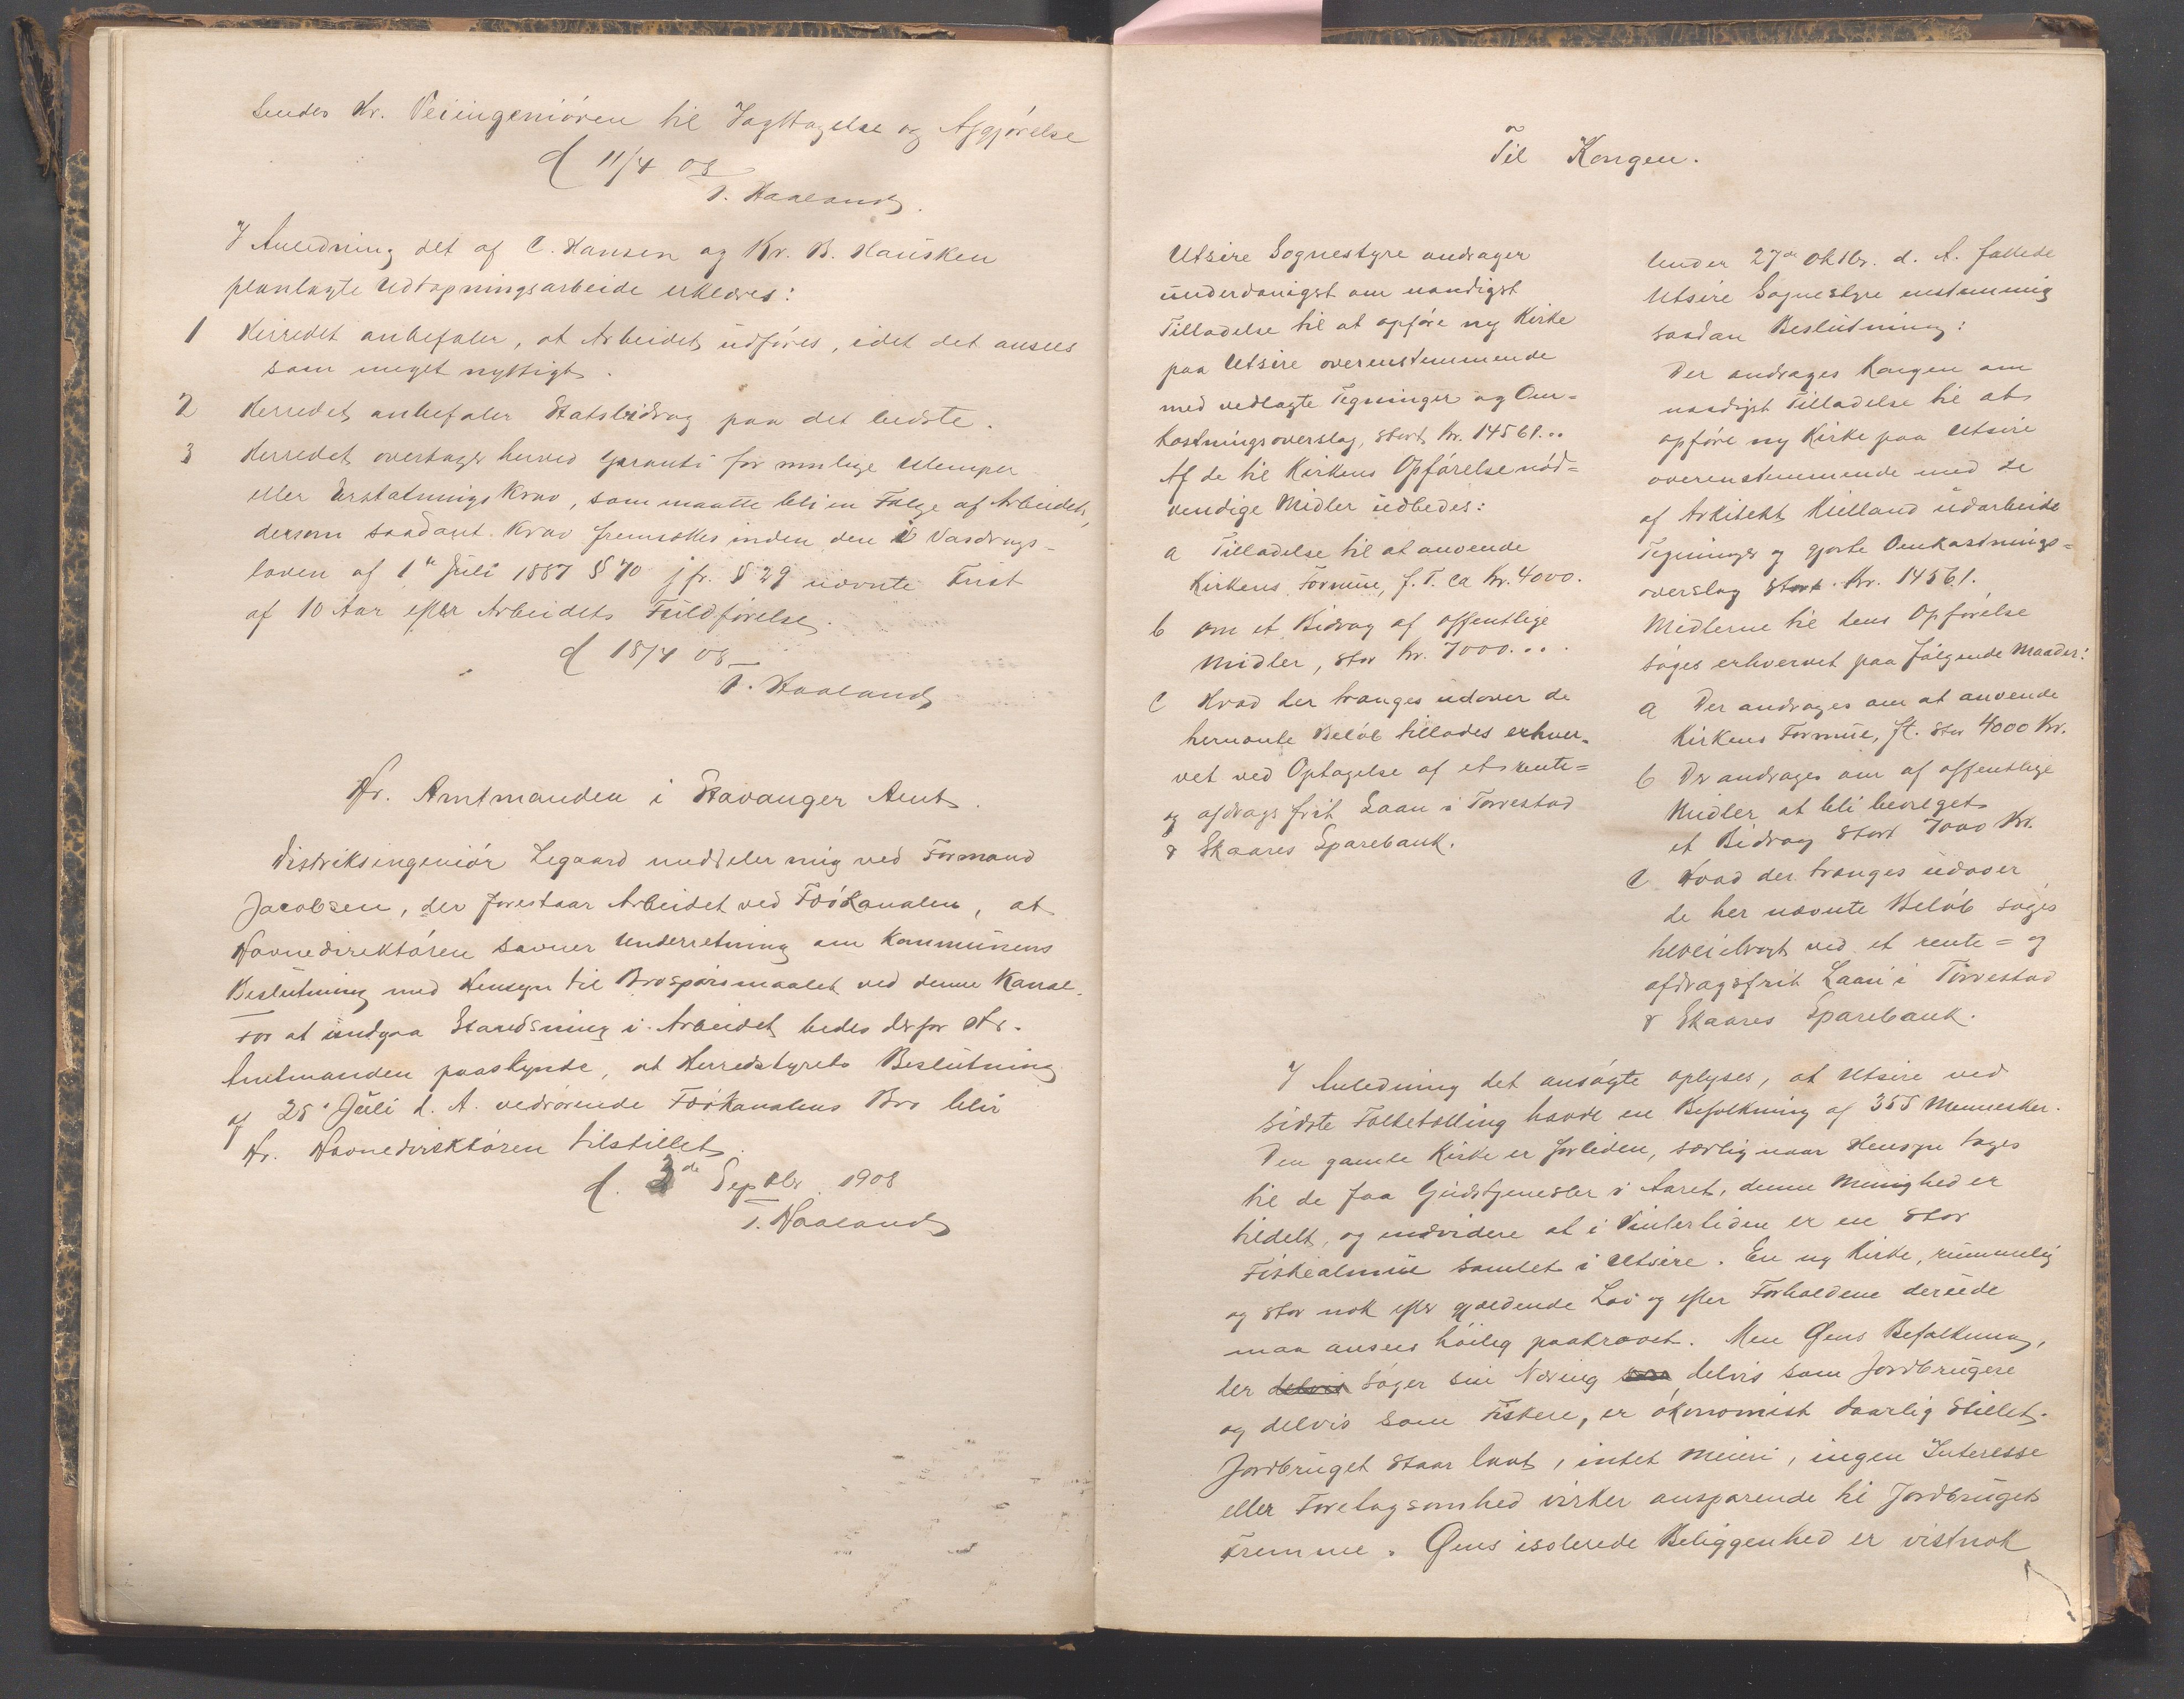 Sendes Hr. Veiingeniören til Iagttagelse og Afgjörelse
d 11/4 08
T. Haaland.
I Anledning det af C. Hansen og Kr. B. Hausken
planlagte Udtapningsarbeide erklæres:
1 Herredet anbefaler, at Arbeidet udföres, idet det ansees
som meget nyttigt.
2 Herredet anbefaler Statsbidrag paa det bedste.
3 Herredet overtager herved Garanti for mulige Ulemper
eller Erstatningskrav, som maatte bli en Fölge af Arbeidet,
dersom saadant Krav fremsættes inden den i Vasdrags-
loven af 1ste Juli 1887 § 70 jfr. § 29 nævnte Frist
af 10 Aar efter Arbeidets Fuldförelse.
d 18/4 08
T. Haaland
Hr. Amtmanden i Stavanger Amt.
Distriksingeniör Legaard meddeler mig ved Formand
Jacobsen, der forestaar Arbeidet ved Föökanalen, at
Havnedirektören savner Underretning om Kommunens
Beslutning med Hensyn til Brospörsmaalet ved denne Kanal.
For at undgaa Standsning i Arbeidet bedes derfor Hr.
Amtmanden paaskynde, at Herredstyrets Beslutning
af 25de Juli d. A. vedrörende Föökanalens Bro blir
Hr. Havnedirektören tilstillet.
d. 3de Septbr. 1908
T. Haaland
Til Kongen.
Utsire Sognestyre andrager
underdanigst om naadigst
Tilladelse til at opföre ny Kirke
paa Utsire overenstemmende
med vedlagte Tegninger og Om=
kostningsoverslag, stort Kr. 14561..
Af de til Kirkens Opförelse nöd=
vendige Midler udbedes:
a Tilladelse til at anvende
Kirkens Formue, f. T. ca Kr. 4000.
b om et Bidrag af offentlige
Midler, stor kr. 7000...
c Hvad der trænges udover de
hernævnte Belöb tillades erhver-
vet ved Optagelse af et rente=
og afdragsfrit Laan i Torvestad
& Skaares Sparebank.
Under 27de Oktbr. d. A. fattede
Utsire Sognestyre enstemmig
saadan Beslutning:
Der andrages Kongen om
naadigst Tilladelse til at
opföre ny Kirke paa Utsire
overenstemmende med de
af Arkitekt Kielland udarbeide
Tegninger og gjorte Omkostnings=
overslag stort Kr. 14561.
Midlerne til dens Opförelse
söges erhvervet paa fölgende Maader:
a Der andrages om at anvende
Kirkens Formue, ft. stor 4000 Kr.
b Der andrages om af offentlige
Midler at bli bevilget
et Bidrag stort 7000 Kr.
c Hvad der trænges udover
de her nævnte Belöb söges
ved et rente= og
afdragsfrit Laan i Torvestad
& Skaares Sparebank.
I Anledning det ansögte oplyses, at Utsire ved
sidste Folketælling havde en Befolkning af 355 Mennesker.
Den gamle Kirke er forliden, særlig naar Hensyn tages
til de faa Gudstjenester i Aaret, denne Menighed er
tildelt, og endvidere at i Vintertiden er en stor
Fiskealmue samlet i Utsire. En ny Kirke, rummelig
og stor nok efter gjældende Lov og efter Forholdene derude
maa ansees höilig paakrævet. Men Öens Befolkning,
der delvis söger sin Næring som delvis som Jordbrugere
og delvis som Fiskere, er ökonomisk daarlig stillet.
Jordbruget staar lavt, intet Meieri, ingen Interesse
eller Foretagsomhed virker ansporende til Jordbrugets
Fremme. Öens isolerede Beliggenhed er vistnok